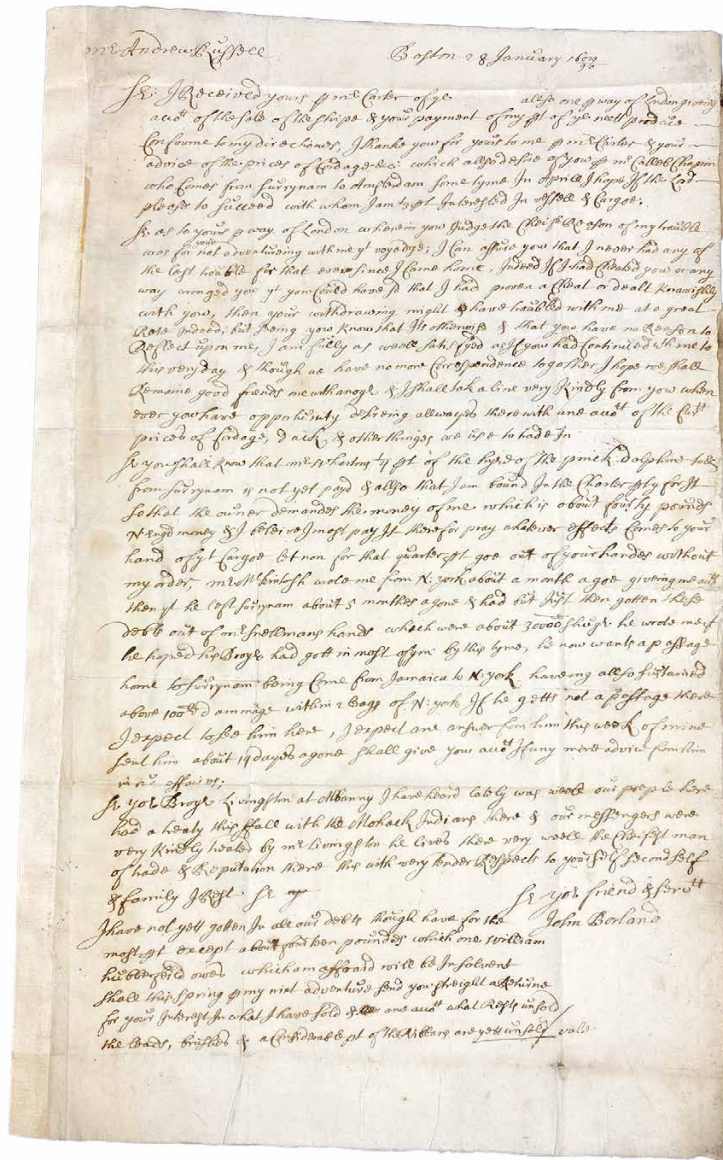 Mr Andrew Russell
Boston 28 January 1689/90
Sr: I Received yours p mr Carter of ye allso one p way of London giveing
accot of the sale of the shipe & your payment of my pt of ye nett produce
Conforme to my directiones, I thanke you for yours to me p mr Carter & your
advice of the prices of Cordage &c: which allso desire of you p mr Calleb Chapin
who Comes from Surrynam to Amsterdam some tyme In Aprill I hope If the Lord
please to succeed with whom I am pt Interested In vessell & Cargoe:
Sr as to yours p way of London wherein you Judge the Cheife Reason of my trouble
was for your not adventureing with me yt voyadge; I can assure you that I never had any of
the lest trouble for that ever since I Came home, Indeed If I had Cheated you or any
way wronged you yt you Could have sd that I had proven a Cheat or dealt knavishly
with you, then your withdrawing might have troubled with me at a great
Rate Indeed, but Being you know that Its otherwise & that you have no Reason to
Reflect upon me, I am fully as weell satisfyed as If you had Continued with me to
this very day & though we have no more Correspondence together I hope we shall
Remaine good friends me wthanoyr & I shall tak a line very kindly from you when
ever you have opportunity desireing allwayes therewith ane accott of the Curtt
prices of Cordage, duck & other thinges we use to trade In
Sr you shall know that mr Whartons 1/4 pt of the hyre of the pinck dalphine to &
from Surrynam is not yet payd & allso that I am bound In the Charter pty for It
so that the owner demandes the money of me which is about fourty pounds
N: Engd money & I beleive I most pay It therefor pray whatever effects Comes to your
hand of yt Cargoe let non for that quarter pt goe out of your handes without
my order, mr Mackintosh wrote me from N: york about a month a goe giveing me accott
then yt he left Surrynam about 5 monthes agone & had but Just then gotten these
debts out of mr Snellmans hands which were about 30000 he wrote me yt
he hoped his Broyr had gott in most of ym by this tyme, he now wants a passage
home to Surrynam being Come from Jamaica to N: york haveing allso sustained
above 100 dammage within 2 leags of N: york If he getts not a passage there
I expect to see him here, I expect ane answer from him this week of mine
sent him about 14 dayes agone shall give you accott If any more advice from him
in our affaires;
Sr yor Broyr Livingston at Albanny I have heard lately was weele our people here
had a treaty this ffall with the Mohack Indians there & our messengers were
very kindly treated by mr Livingston he lives there very weele the Cheifest man
of trade & Reputation there this with very tender Respects to yourself second self
& family I Rest Sr
Sr yor friend & servtt
John Borland
I have not yett gotten In all our debts though have for the
most pt except about fourteen poundes which one William
Hubberfeild owes which am affraid will be Insolvent
shall this spring p my nixt adventure send you streight a Returne
for your Interest In what I have sold & ane accott what Rests unsold
the beads, brushes & a Considerable pt of the Ribbans are yett unsold / vale